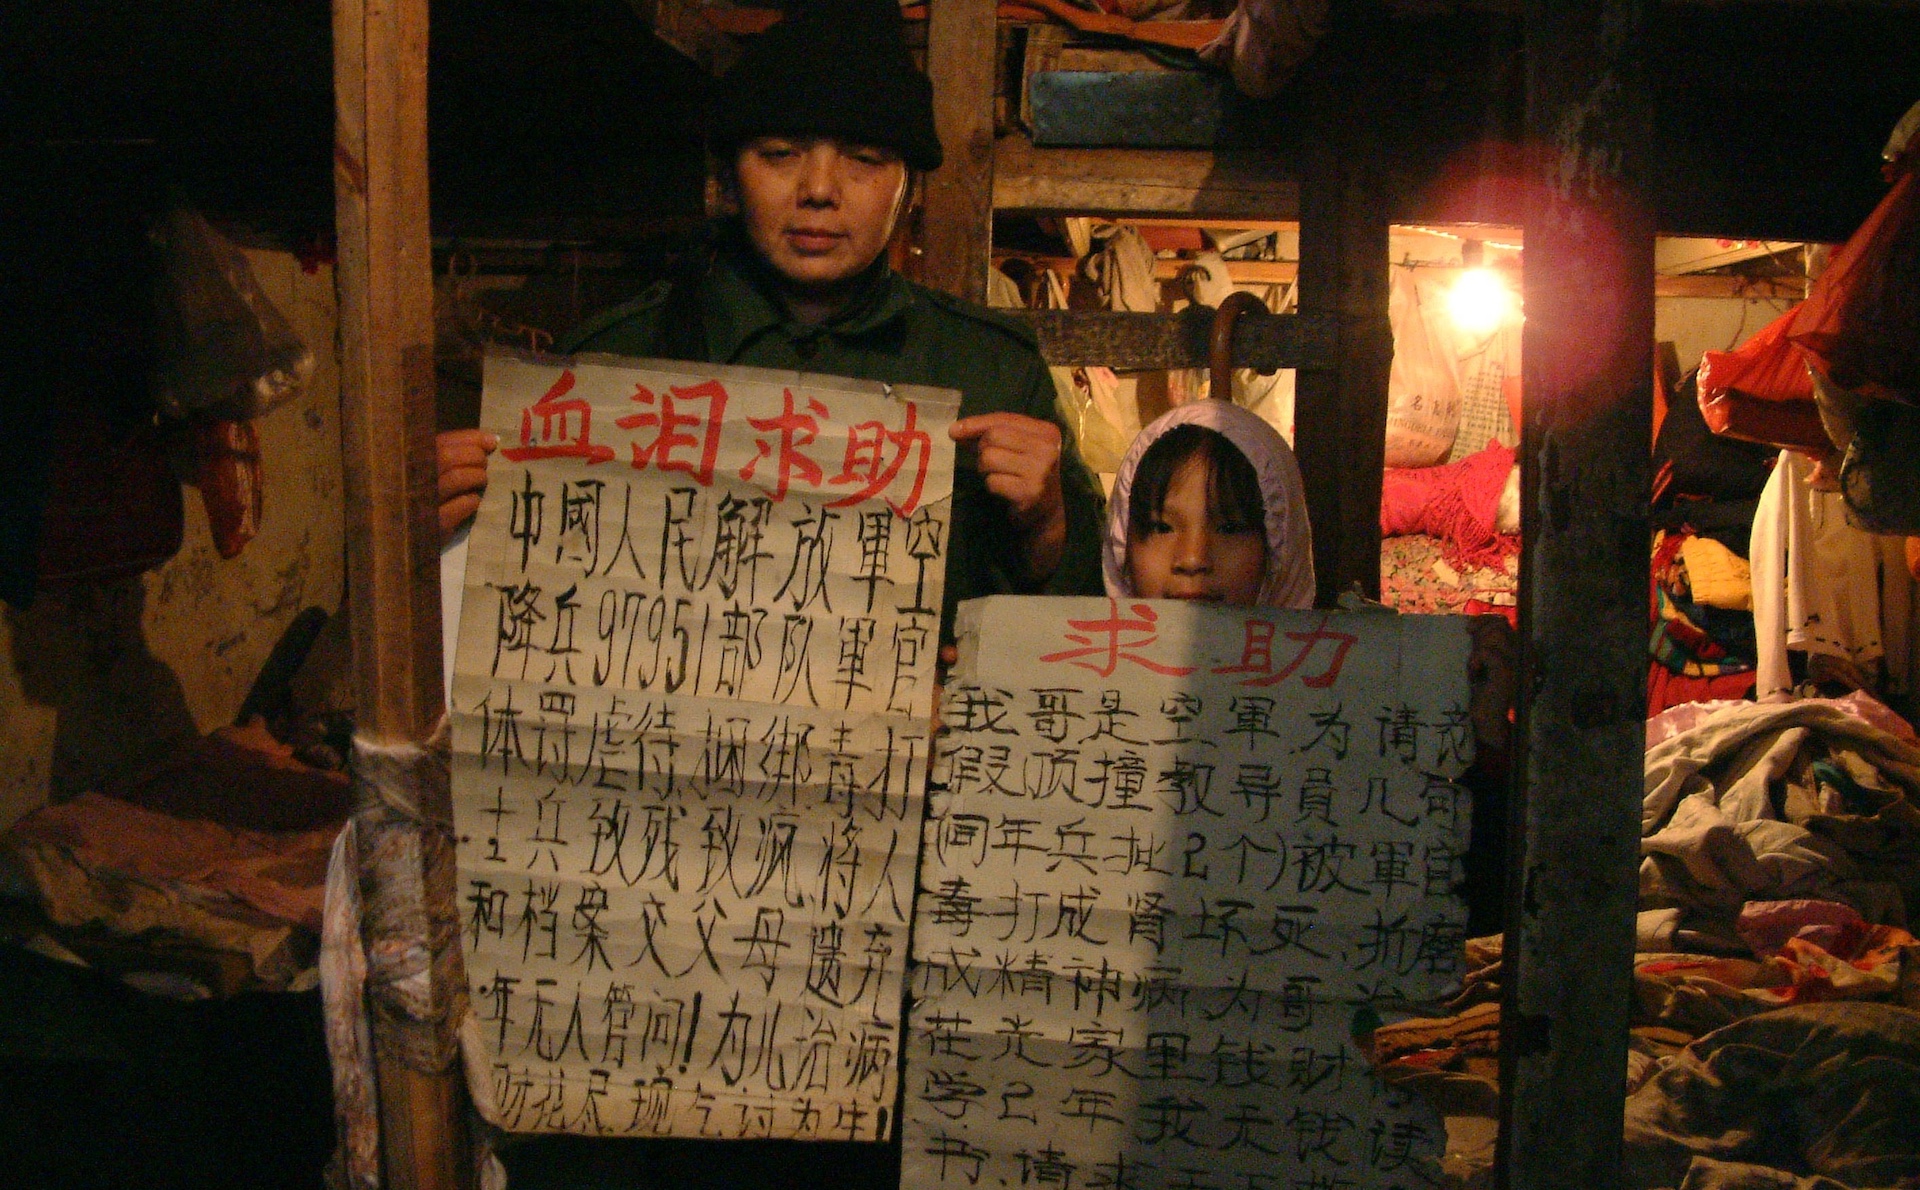 血泪求助
中國人民解放軍空
降兵97951部队軍官
体罚虐待.捆绑.毒打
士兵致残致疯.将人
和档案交父母遗弃
年无人管问!为儿治病
财花尽现乞讨为生!
求助
我哥是空軍.为请
假顶撞教导員几句
(同年兵扯2个)被軍官
毒打成肾坏死.折磨
成精神病.为哥治
花光家里钱财
学2年我无钱读
书.请求